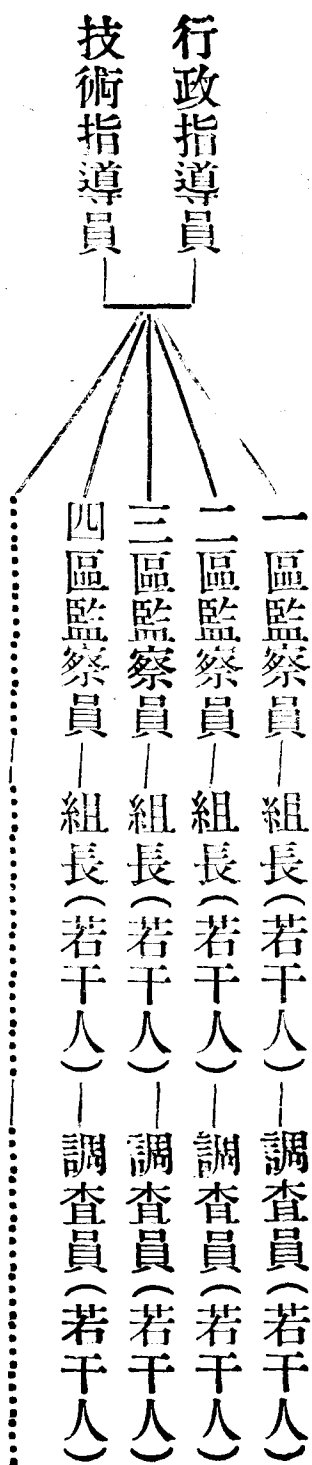 行政指導員
技術指導員
一區監察員—組長(若干人)—調查員(若干人)
二區監察員—組長(若干人)—調查員(若干人)
三區監察員—組長(若干人)—調查員(若干人)
四區監察員—組長(若干人)—調查員(若干人)